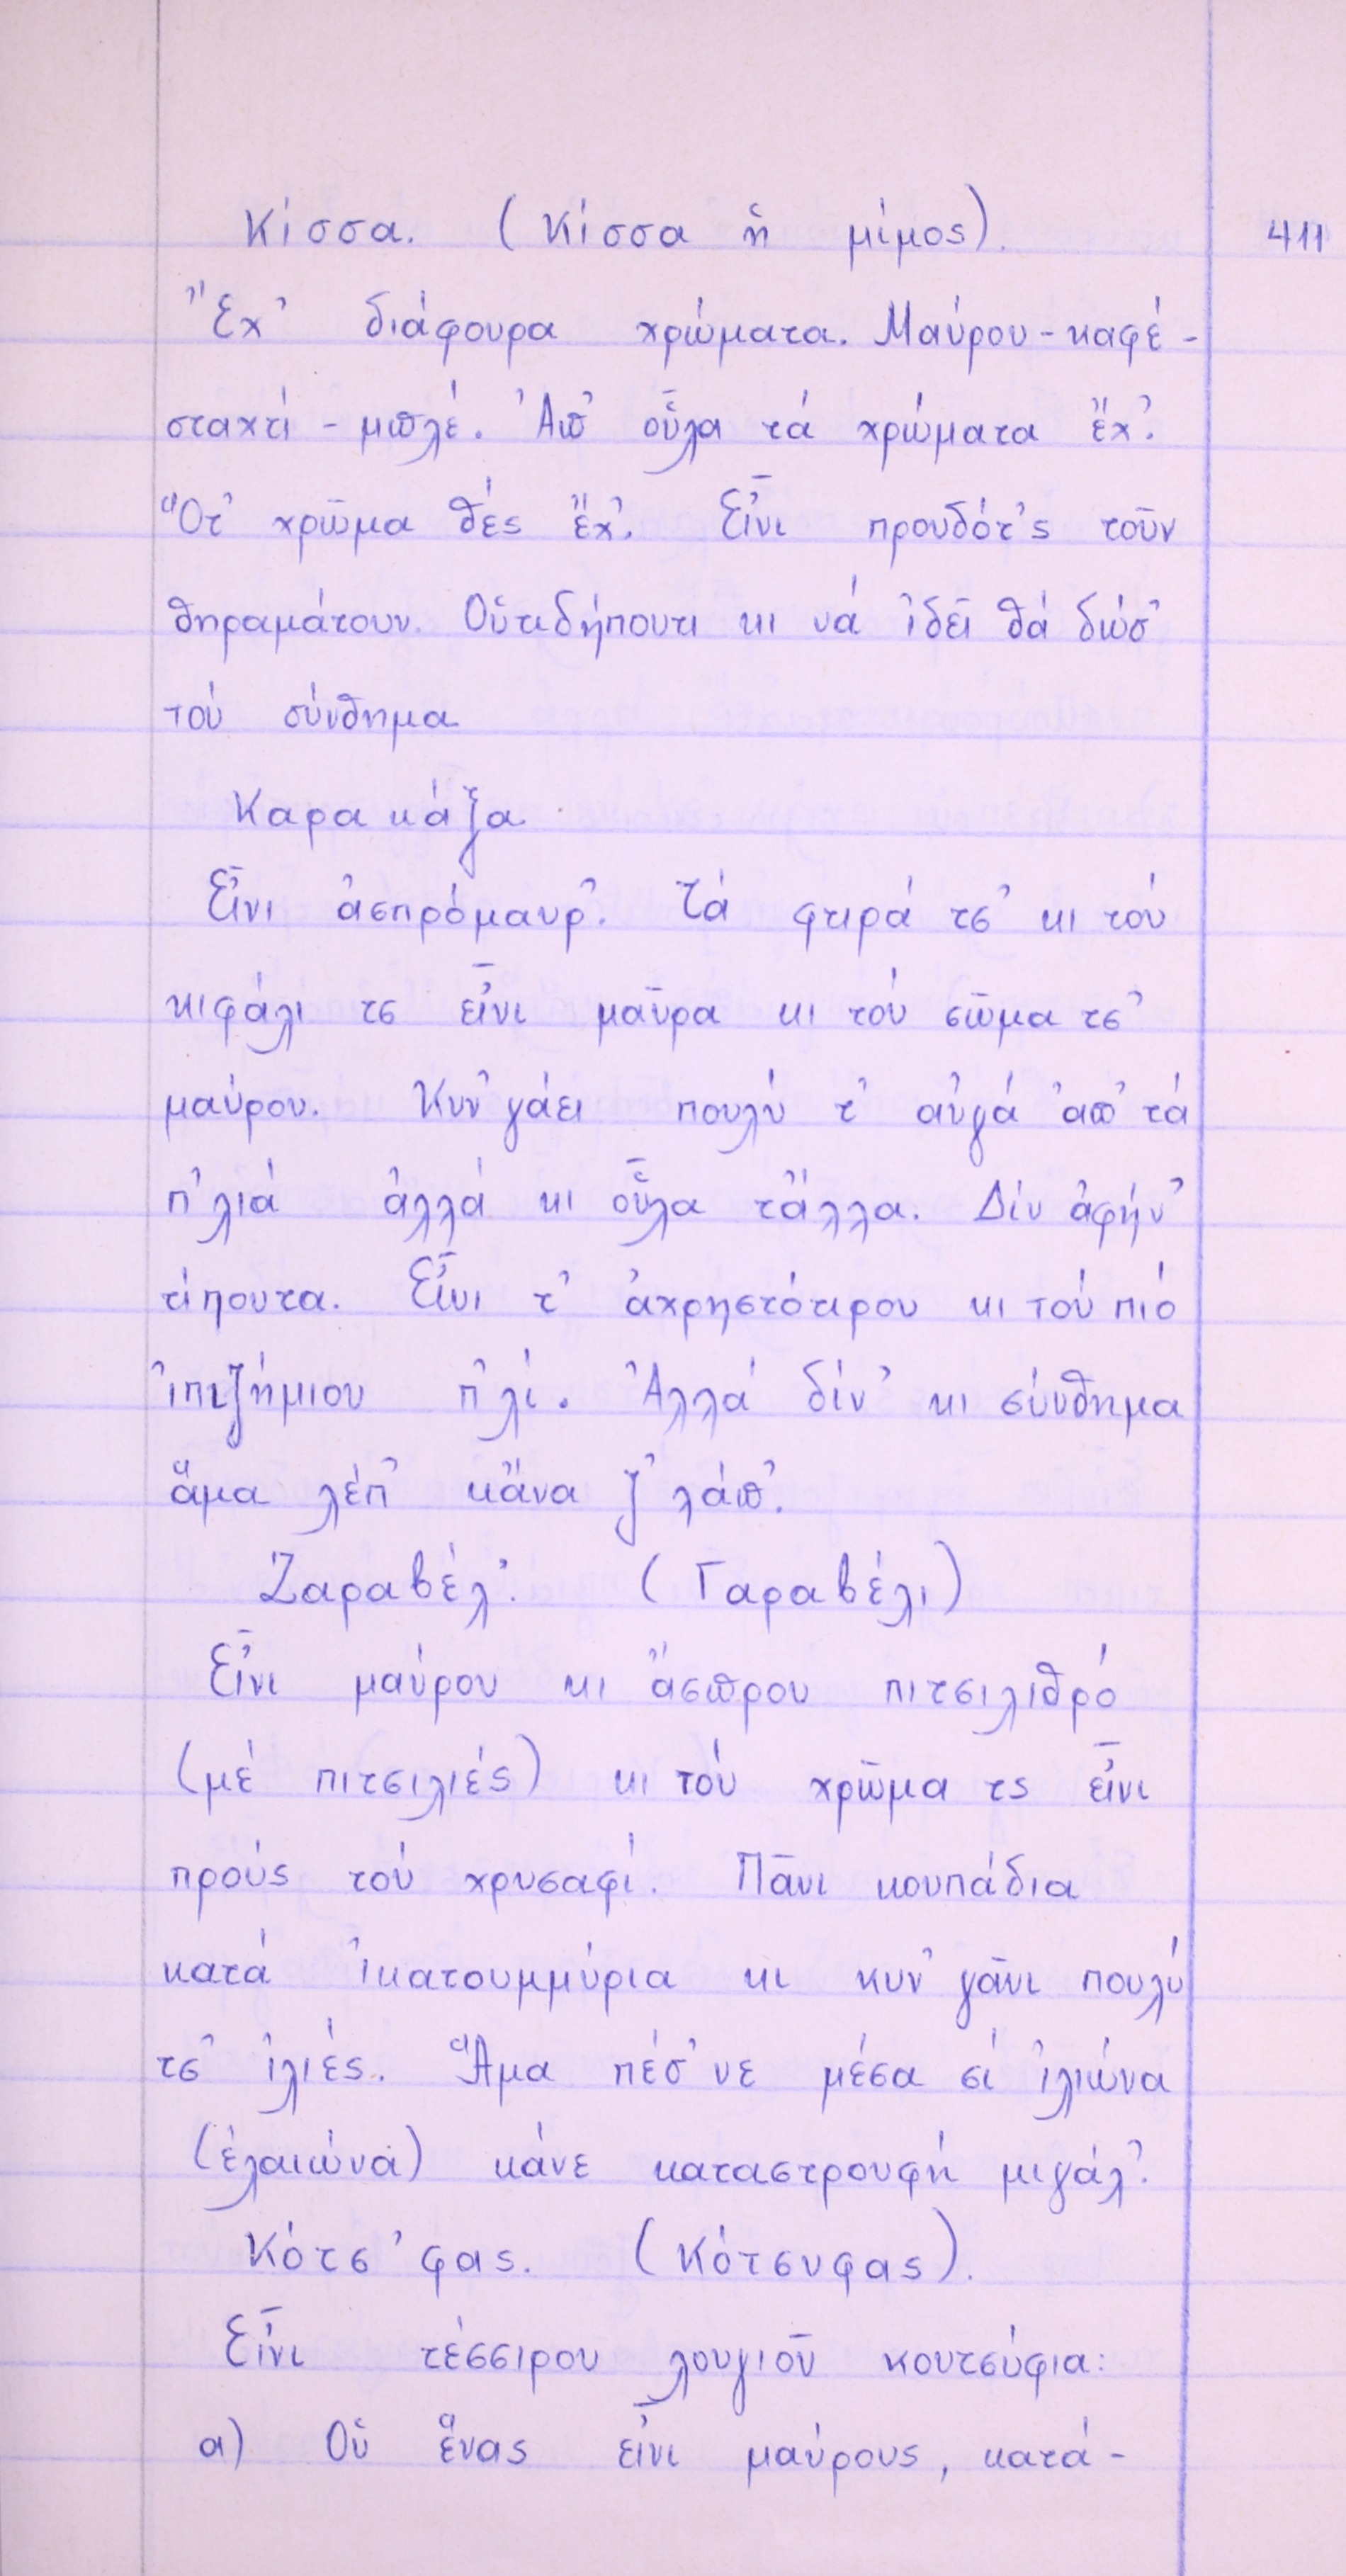 Κίσσα. (Κίσσα ἤ μίμος). 411
Ἔχ' διάφουρα χρώματα. Μαύρου - καφέ -
σταχτί - μπλέ. Ἀπ' οὗλα τά χρώματα ἔχ'.
Ὅτ' χρῶμα θές ἔχ'. Εἶνι προυδότ'ς τοῦν
θηραμάτουν. Οὑτιδήπουτι κι νά ἰδεῖ θά δώσ'
τού σύνθημα
Καρακάξα
Εἶνι ἀσπρόμαυρ'. Τά φτιρά τσ' κι τού
κιφάλι τς εἶνι μαῦρα κι τού σῶμα τσ'
μαύρου. Κυν'γάει πουλύ τ' αὐγά ἀπ' τά
π'λιά ἀλλά κι οὗλα τἄλλα. Δίν ἀφήν'
τίπουτα. Εἶνι τ' ἀχρηστότιρου κι τού πιό
ἰπιζήμιου π'λί. Ἀλλά δίν' κι σύνθημα
ἅμα λέπ' κἄνα ζ'λάπ'.
Ζαραβέλ'. (Γαραβέλι)
Εἶνι μαύρου κι ἄσπρου πιτσιλιθρό
(μέ πιτσιλιές) κι τού χρῶμα τς εἶνι
προύς τού χρυσαφί. Πᾶνι κουπάδια
κατά ἰκατουμμύρια κι κυν'γᾶνι πουλύ
τσ' ἰλιές. Ἅμα πέσ'νε μέσα σί ἰλιώνα
(ἐλαιώνα) κάνε καταστρουφή μιγάλ'.
Κότσ'φας. (Κότσυφας).
Εἶνι τέσσιρου λουγιοῦ κουτσύφια:
α) Οὑ ἕνας εἶνι μαύρους, κατά -